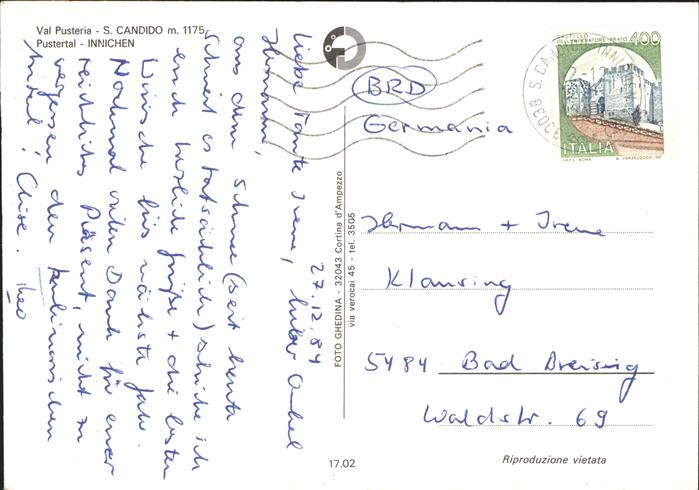 Val Pusteria - S. CANDIDO m. 1175
Pustertal - INNICHEN
27.12.84
Liebe Tante Irene, lieber Onkel
Hermann,
aus dem Schnee (seit heute
schneit es tatsächlich) schicke ich
euch herzliche Grüße + die besten
Wünsche fürs nächste Jahr.
Nochmal vielen Dank für euer
reichliches Präsent, nicht zu
vergessen den kulinarischen
Anteil! Theo
FOTO GHEDINA - 32043 Cortina d'Ampezzo
via verocai 45 - tel. 3505
400
CASTELLO
DELL'IMPERATORE · PRATO
ITALIA
I.P.Z.S. ROMA
39038 S. CANDIDO
BRD
Germania
Hermann + Irene
Klausing
5484 Bad Breisig
Waldstr. 69
17.02
Riproduzione vietata